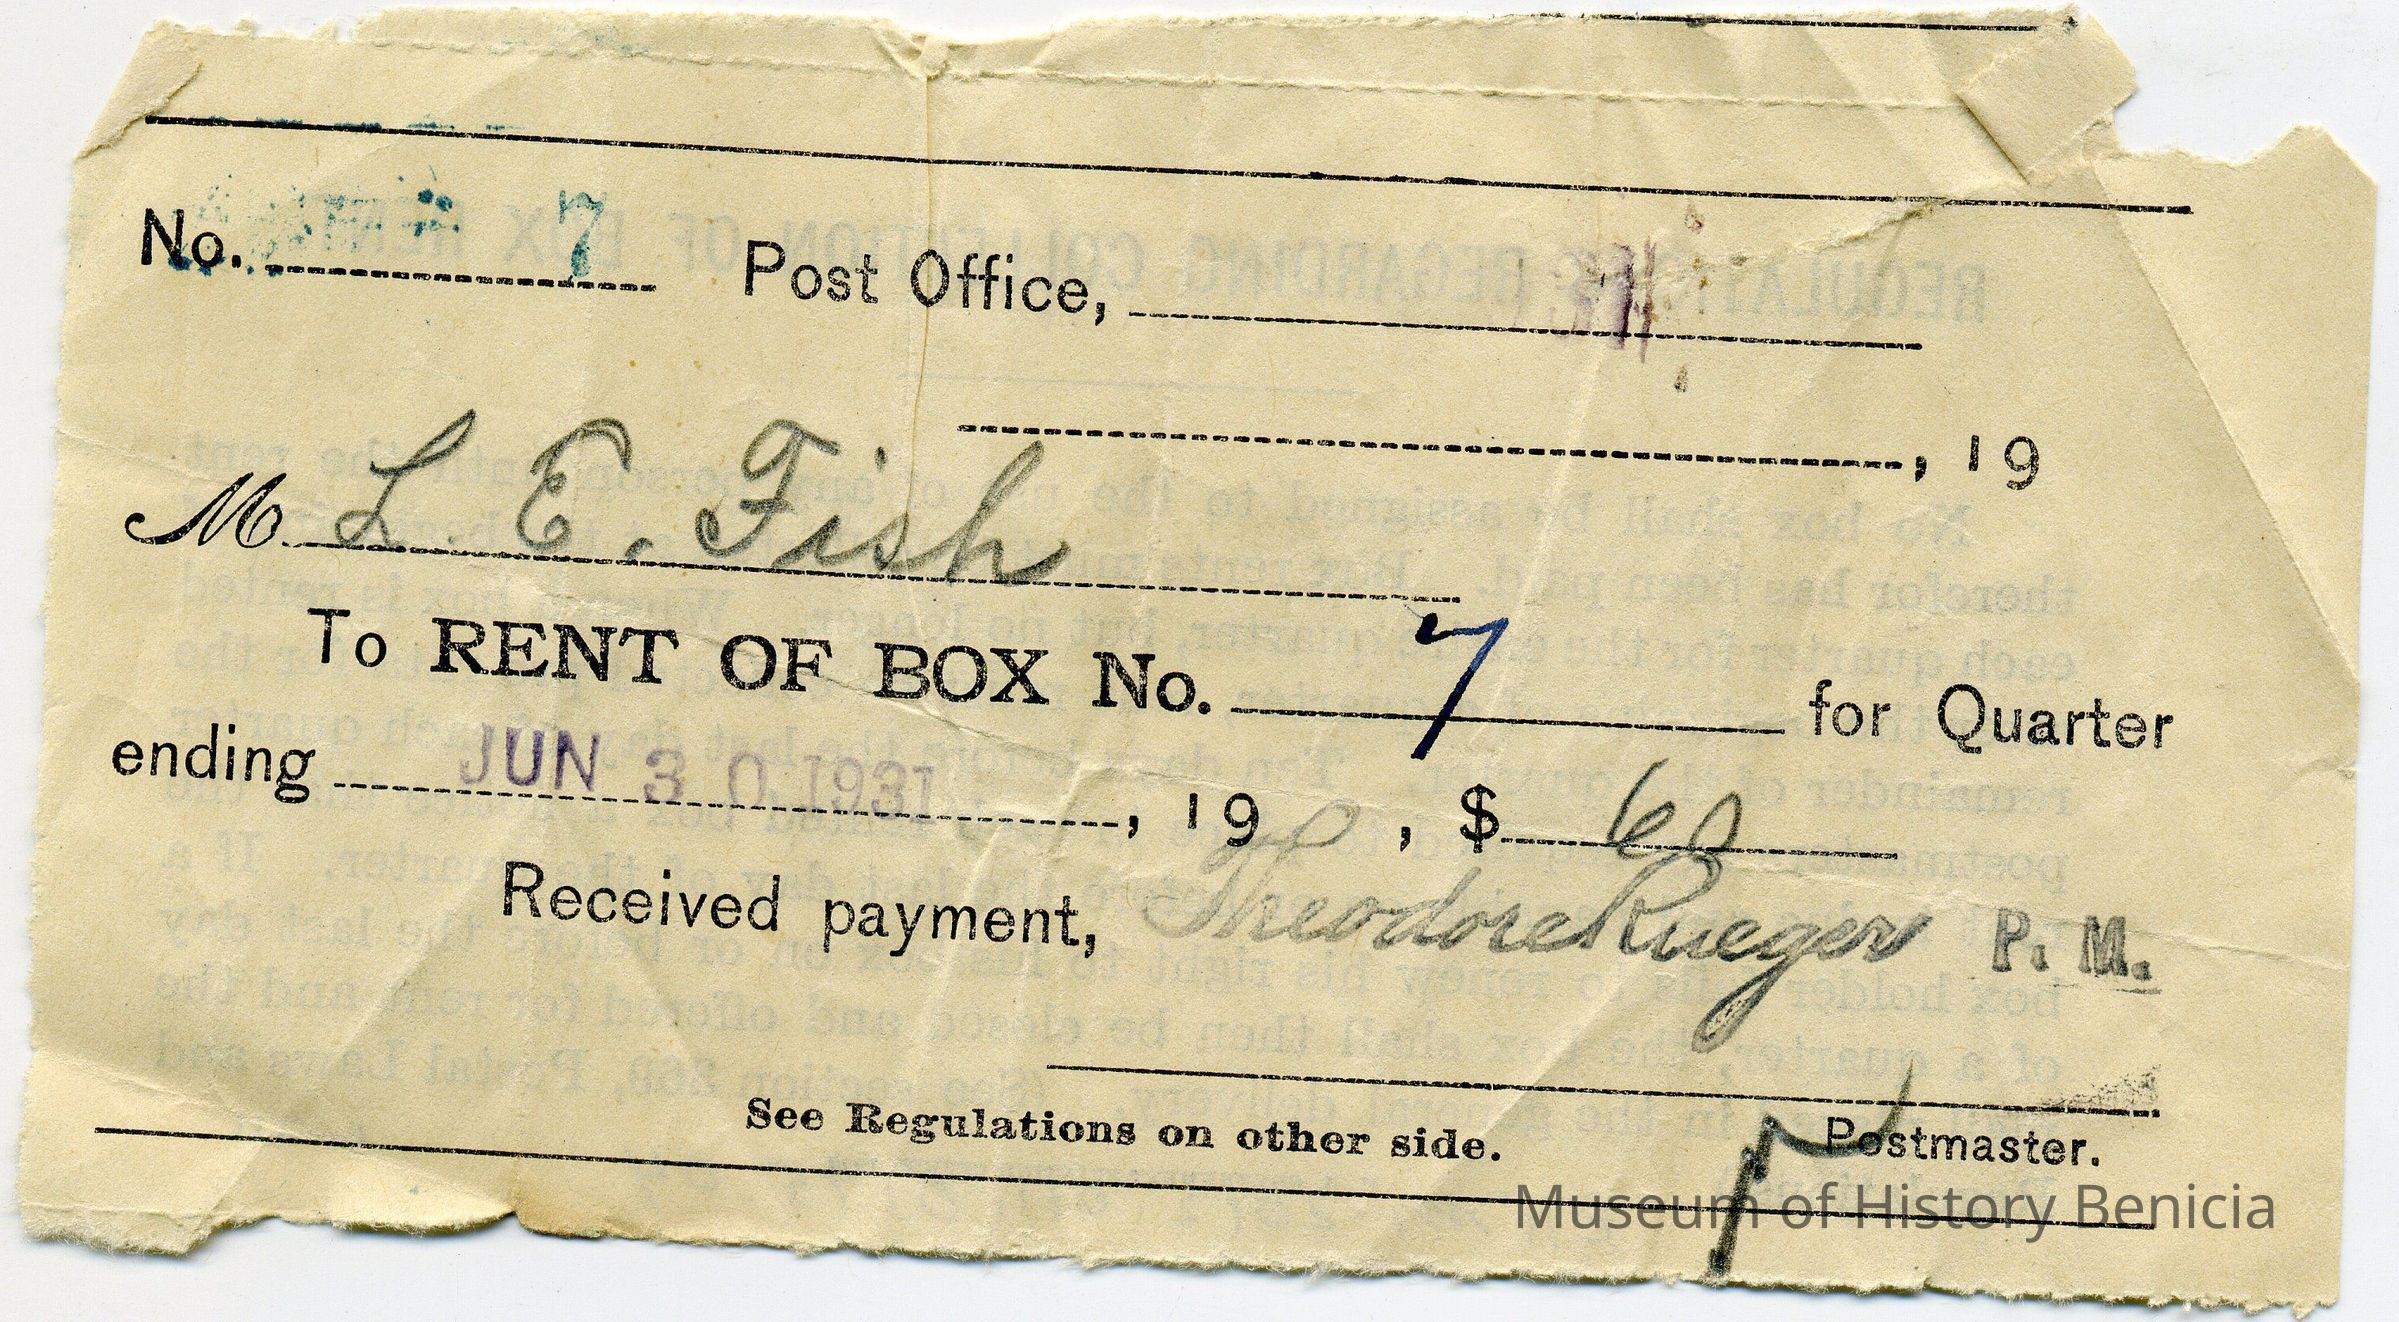 No. 7 Post Office,
, 19
M. L. E. Fish
To RENT OF BOX No. 7 for Quarter
ending JUN 30 1931, 19 , $ 60
Received payment, Theodore Rueger P. M.
Postmaster.
See Regulations on other side.
7
Museum of History Benicia